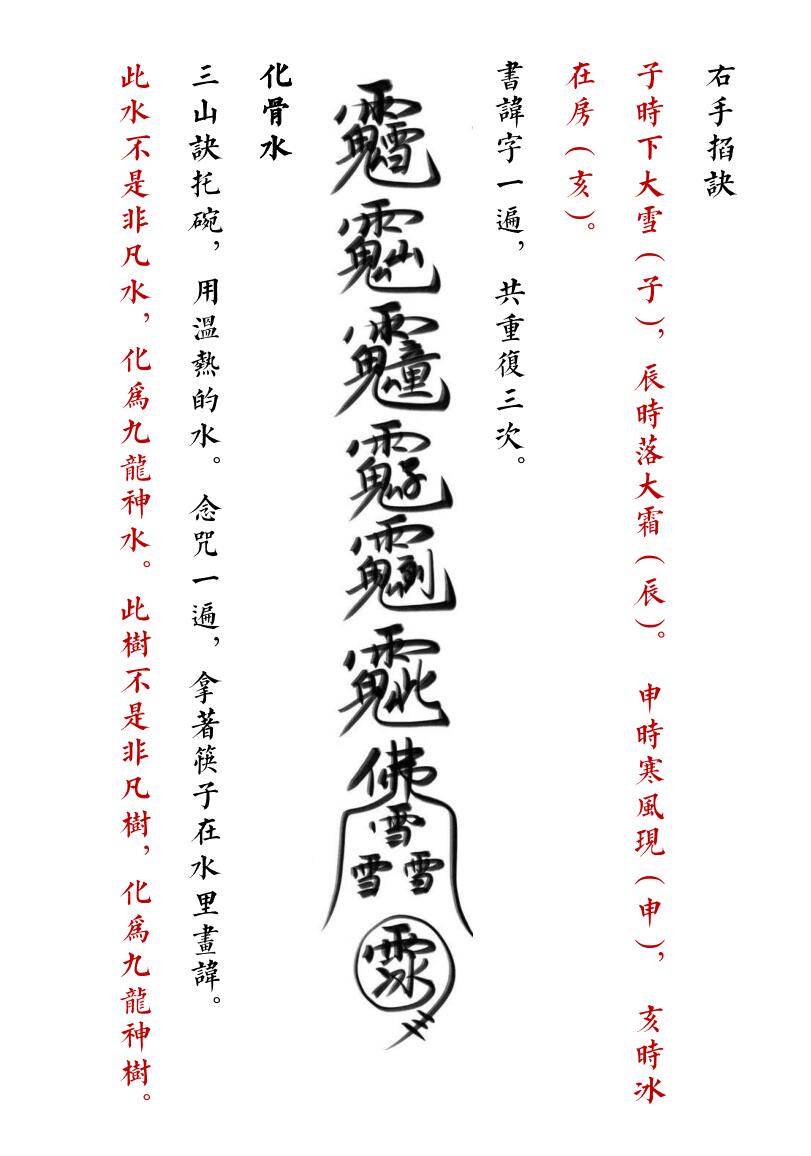 右手掐訣
子時下大雪（子），辰時落大霜（辰）。申時寒風現（申），亥時冰
在房（亥）。
書諱字一遍，共重復三次。
佛
雪
雪雪
化骨水
三山訣托碗，用溫熱的水。念咒一遍，拿著筷子在水里畫諱。
此水不是非凡水，化爲九龍神水。此樹不是非凡樹，化爲九龍神樹。